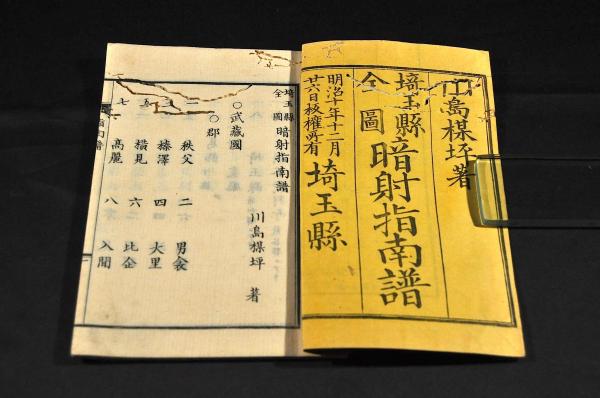 川島楳坪著
埼玉縣
全圖
暗射指南譜
明治十年十二月
廿六日板權所有
埼玉縣
埼玉縣
全圖
暗射指南譜
川島楳坪 著
○武藏國
○郡
一 秩父 二 男衾
三 榛澤 四 大里
五 横見 六 比企
七 高麗 八 入間